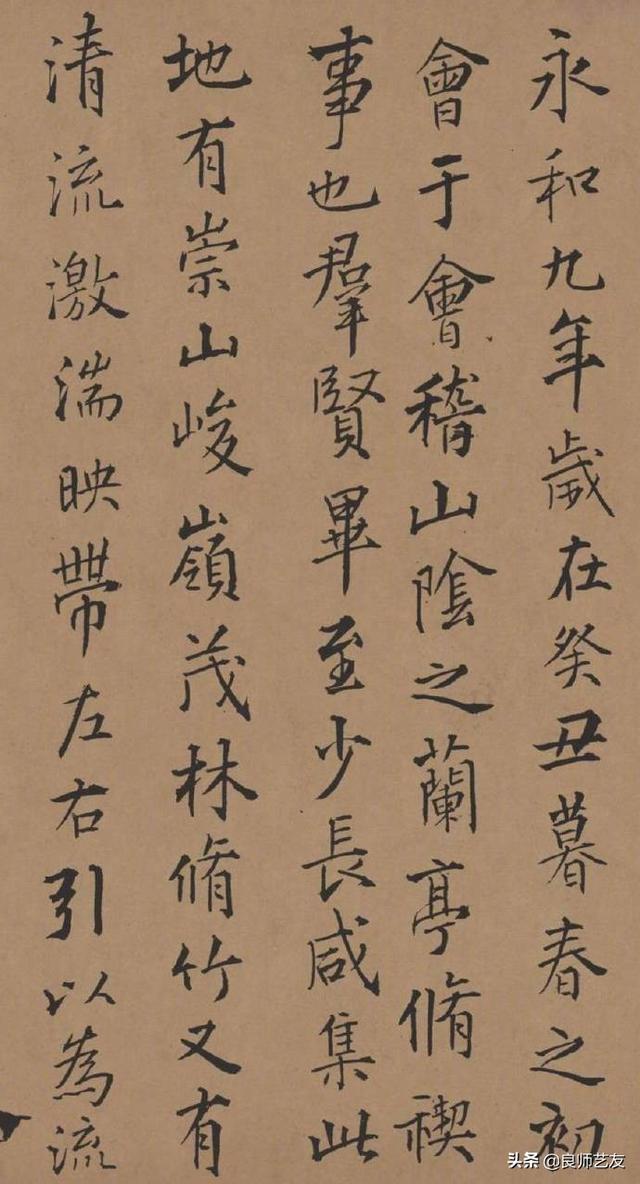 永和九年歲在癸丑暮春之初
會于會稽山陰之蘭亭脩禊
事也羣賢畢至少長咸集此
地有崇山峻嶺茂林脩竹又有
清流激湍映帶左右引以為流
头条 @良师艺友